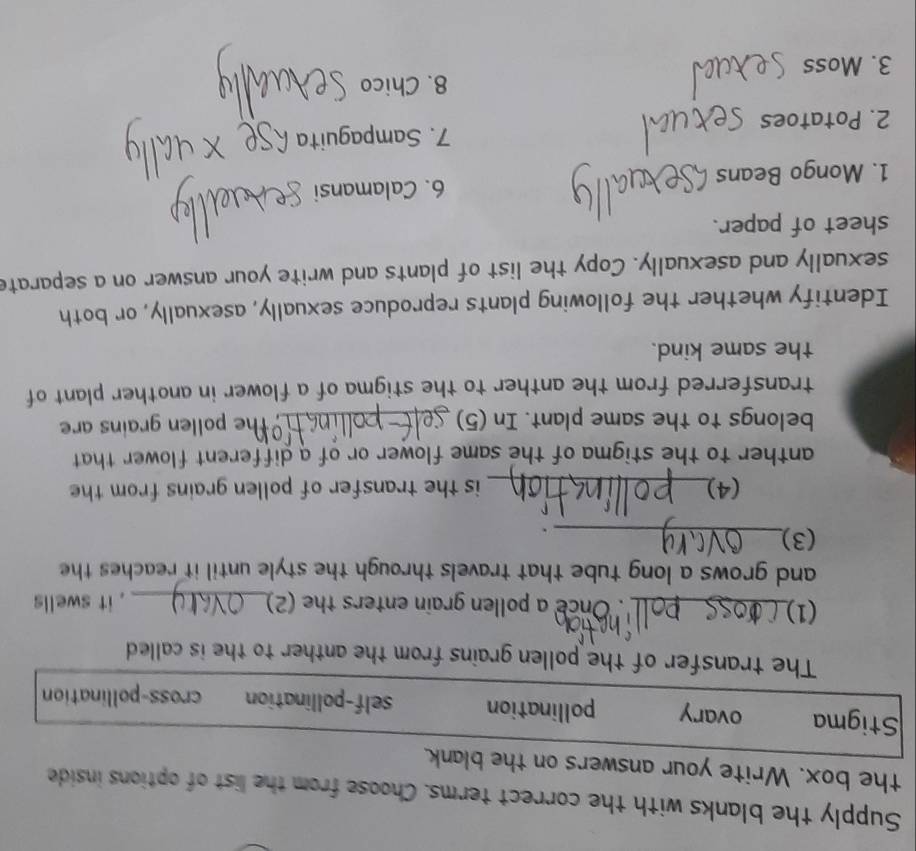 Supply the blanks with the correct terms. Choose from the list of options inside
the box. Write your answers on the blank.
Stigma ovary pollination self-pollination cross-pollination
The transfer of the pollen grains from the anther to the is called
(1) cross pollination. Once a pollen grain enters the (2) ovary, it swells
and grows a long tube that travels through the style until it reaches the
(3) ovary.
(4) pollination is the transfer of pollen grains from the
anther to the stigma of the same flower or of a different flower that
belongs to the same plant. In (5) self-pollination, the pollen grains are
transferred from the anther to the stigma of a flower in another plant of
the same kind.
Identify whether the following plants reproduce sexually, asexually, or both
sexually and asexually. Copy the list of plants and write your answer on a separate
sheet of paper.
1. Mongo Beans Asexually 6. Calamansi Sexually
2. Potatoes Sexual 7. Sampaguita Asexually
3. Moss Sexual 8. Chico Sexually